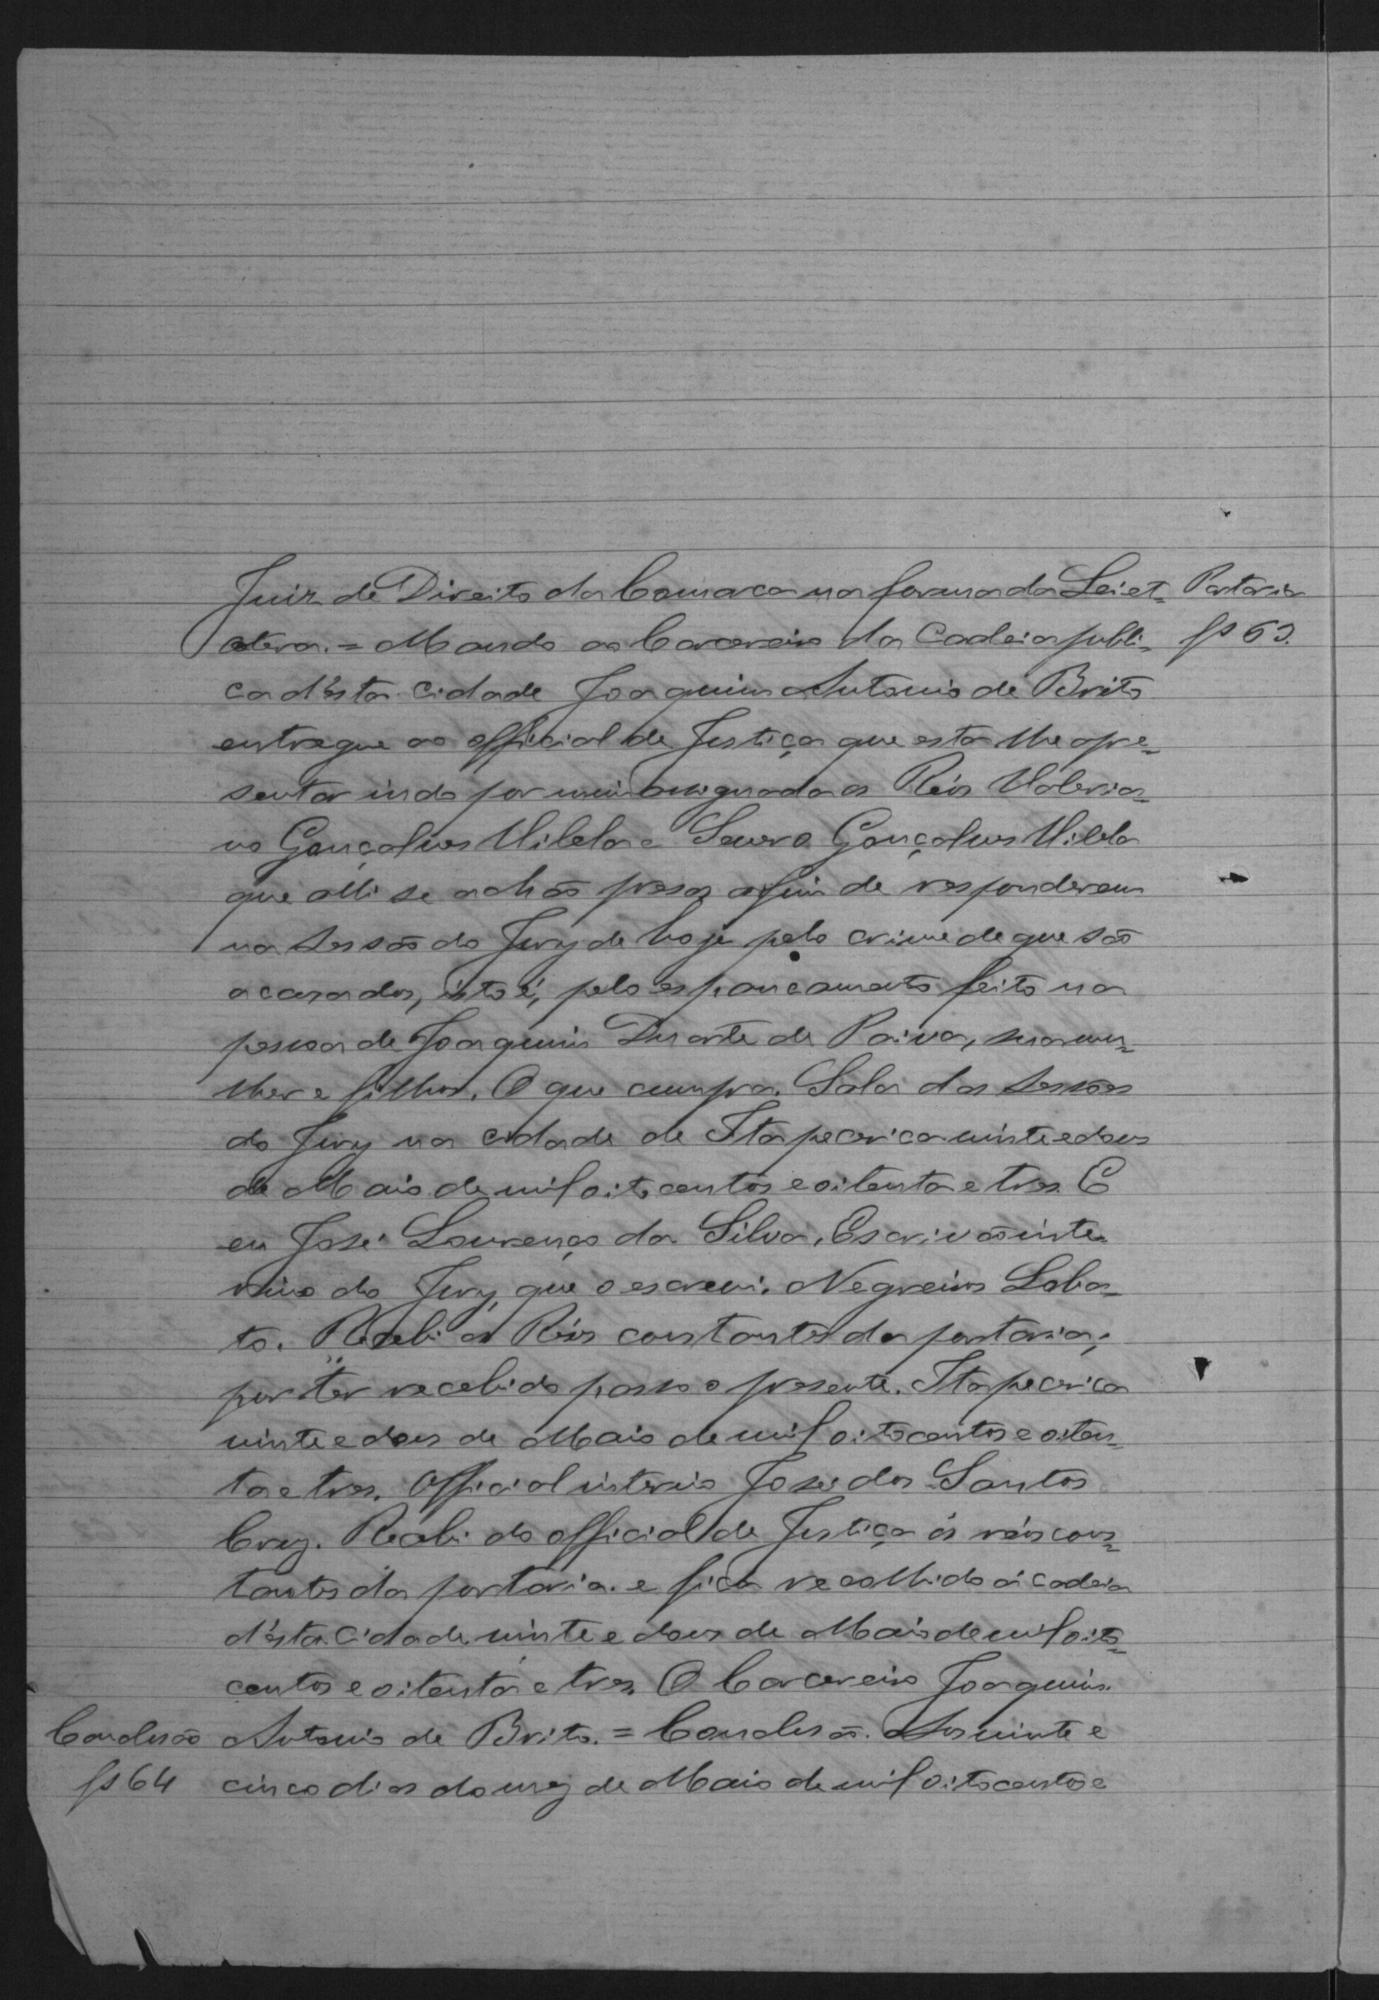 Juiz de Direito da Comarca na forma da Lei et- Portaria
cetera. = Mando ao Carcereiro da Cadeia publi- fs 63.
ca d'esta cidade Joaquim Antonio de Brito
entregue ao official de Justiça que esta lhe apre-
sentar indo por mim assignada os Réos Valeria-
no Gonçalves Vilela e Severo Gonçalves Vilela
que alli se achão presos afim de responderem
na Sessão do Jury de hoje pelo crime de que são
acusados, isto é, pelo espancamento feito na
pessoa de Joaquim Duarte de Paiva, sua mu-
lher e filhos. O que cumpra. Sala das Sessões
do Jury na cidade de Itapecerica vinte e dous
de Maio de mil oitocentos e oitenta e tres. E
eu José Lourenço da Silva, Escrivão inte-
rino do Jury, que o escrevi. Negreiros Loba-
to. Recebi os Réos constantes da portaria,
por ter recebido passo o presente. Itapecerica
vinte e dous de Maio de mil oitocentos e oiten-
ta e tres. Official interino José dos Santos
Cruz. Recebi do official de Justiça os réos cons-
tantes da portaria. e fica recolhido á cadeia
d'esta Cidade vinte e dous de Maio de mil oito-
centos e oitenta e tres. O Carcereiro Joaquim
Conclusão Antonio de Brito. = Conclusão. Aos vinte e
fs 64 cinco dias do mez de Maio de mil oitocentos e